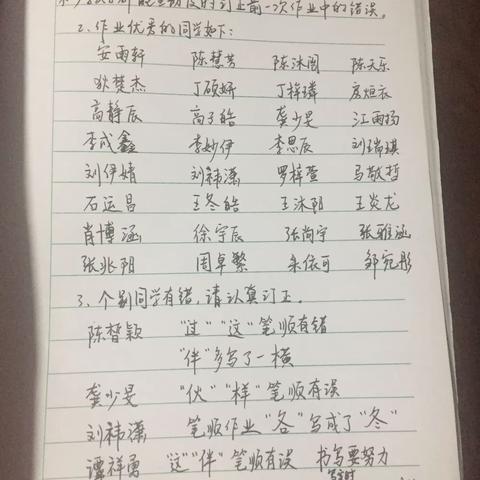 及时订正前一次作业中的错误。
2.作业优秀的同学如下:
安雨轩 陈慧芳 陈沐阅 陈天乐
狄楚杰 丁硕妍 丁梓璘 房烜衣
高静辰 高子皓 龚少旻 江雨扬
李成鑫 李妙伊 李思辰 刘瑞琪
刘伊婧 刘祎潇 罗梓萱 马敬哲
石运昌 王冬皓 王沐阳 王炎龙
肖博涵 徐宇辰 张尚宇 张雅涵
张兆阳 周卓繁 朱依可 邹宛彤
3、个别同学有错,请认真订正。
陈皙颖 "过""这"笔顺有错
"伴"多写了一横
龚少旻 "伙""样"笔顺有误
刘祎潇 笔顺作业"各"写成了"冬"
谭祥勇 "这""伴"笔顺有误 书写要努力